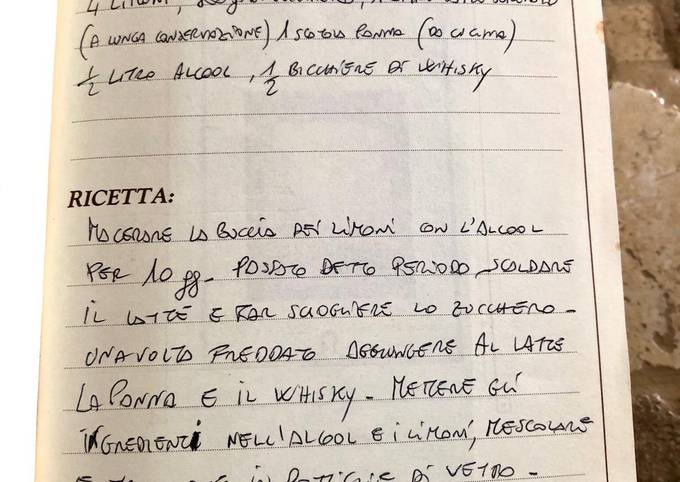 4 LIMONI,
(A LUNGA CONSERVAZIONE) 1 SCATOLA PANNA (DA CUCINA)
1/2 LITRO ALCOOL, 1/2 BICCHIERE DI WHISKY
RICETTA:
MACERARE LA BUCCIA DEI LIMONI CON L'ALCOOL
PER 10 gg- PASSATO DETTO PERIODO, SCALDARE
IL LATTE E FAR SCIOGLIERE LO ZUCCHERO -
UNA VOLTA FREDDATO AGGIUNGERE AL LATTE
LA PANNA E IL WHISKY - METTERE GLI
INGREDIENTI NELL'ALCOOL E I LIMONI, MESCOLARE
E IN BOTTIGLIE DI VETRO -